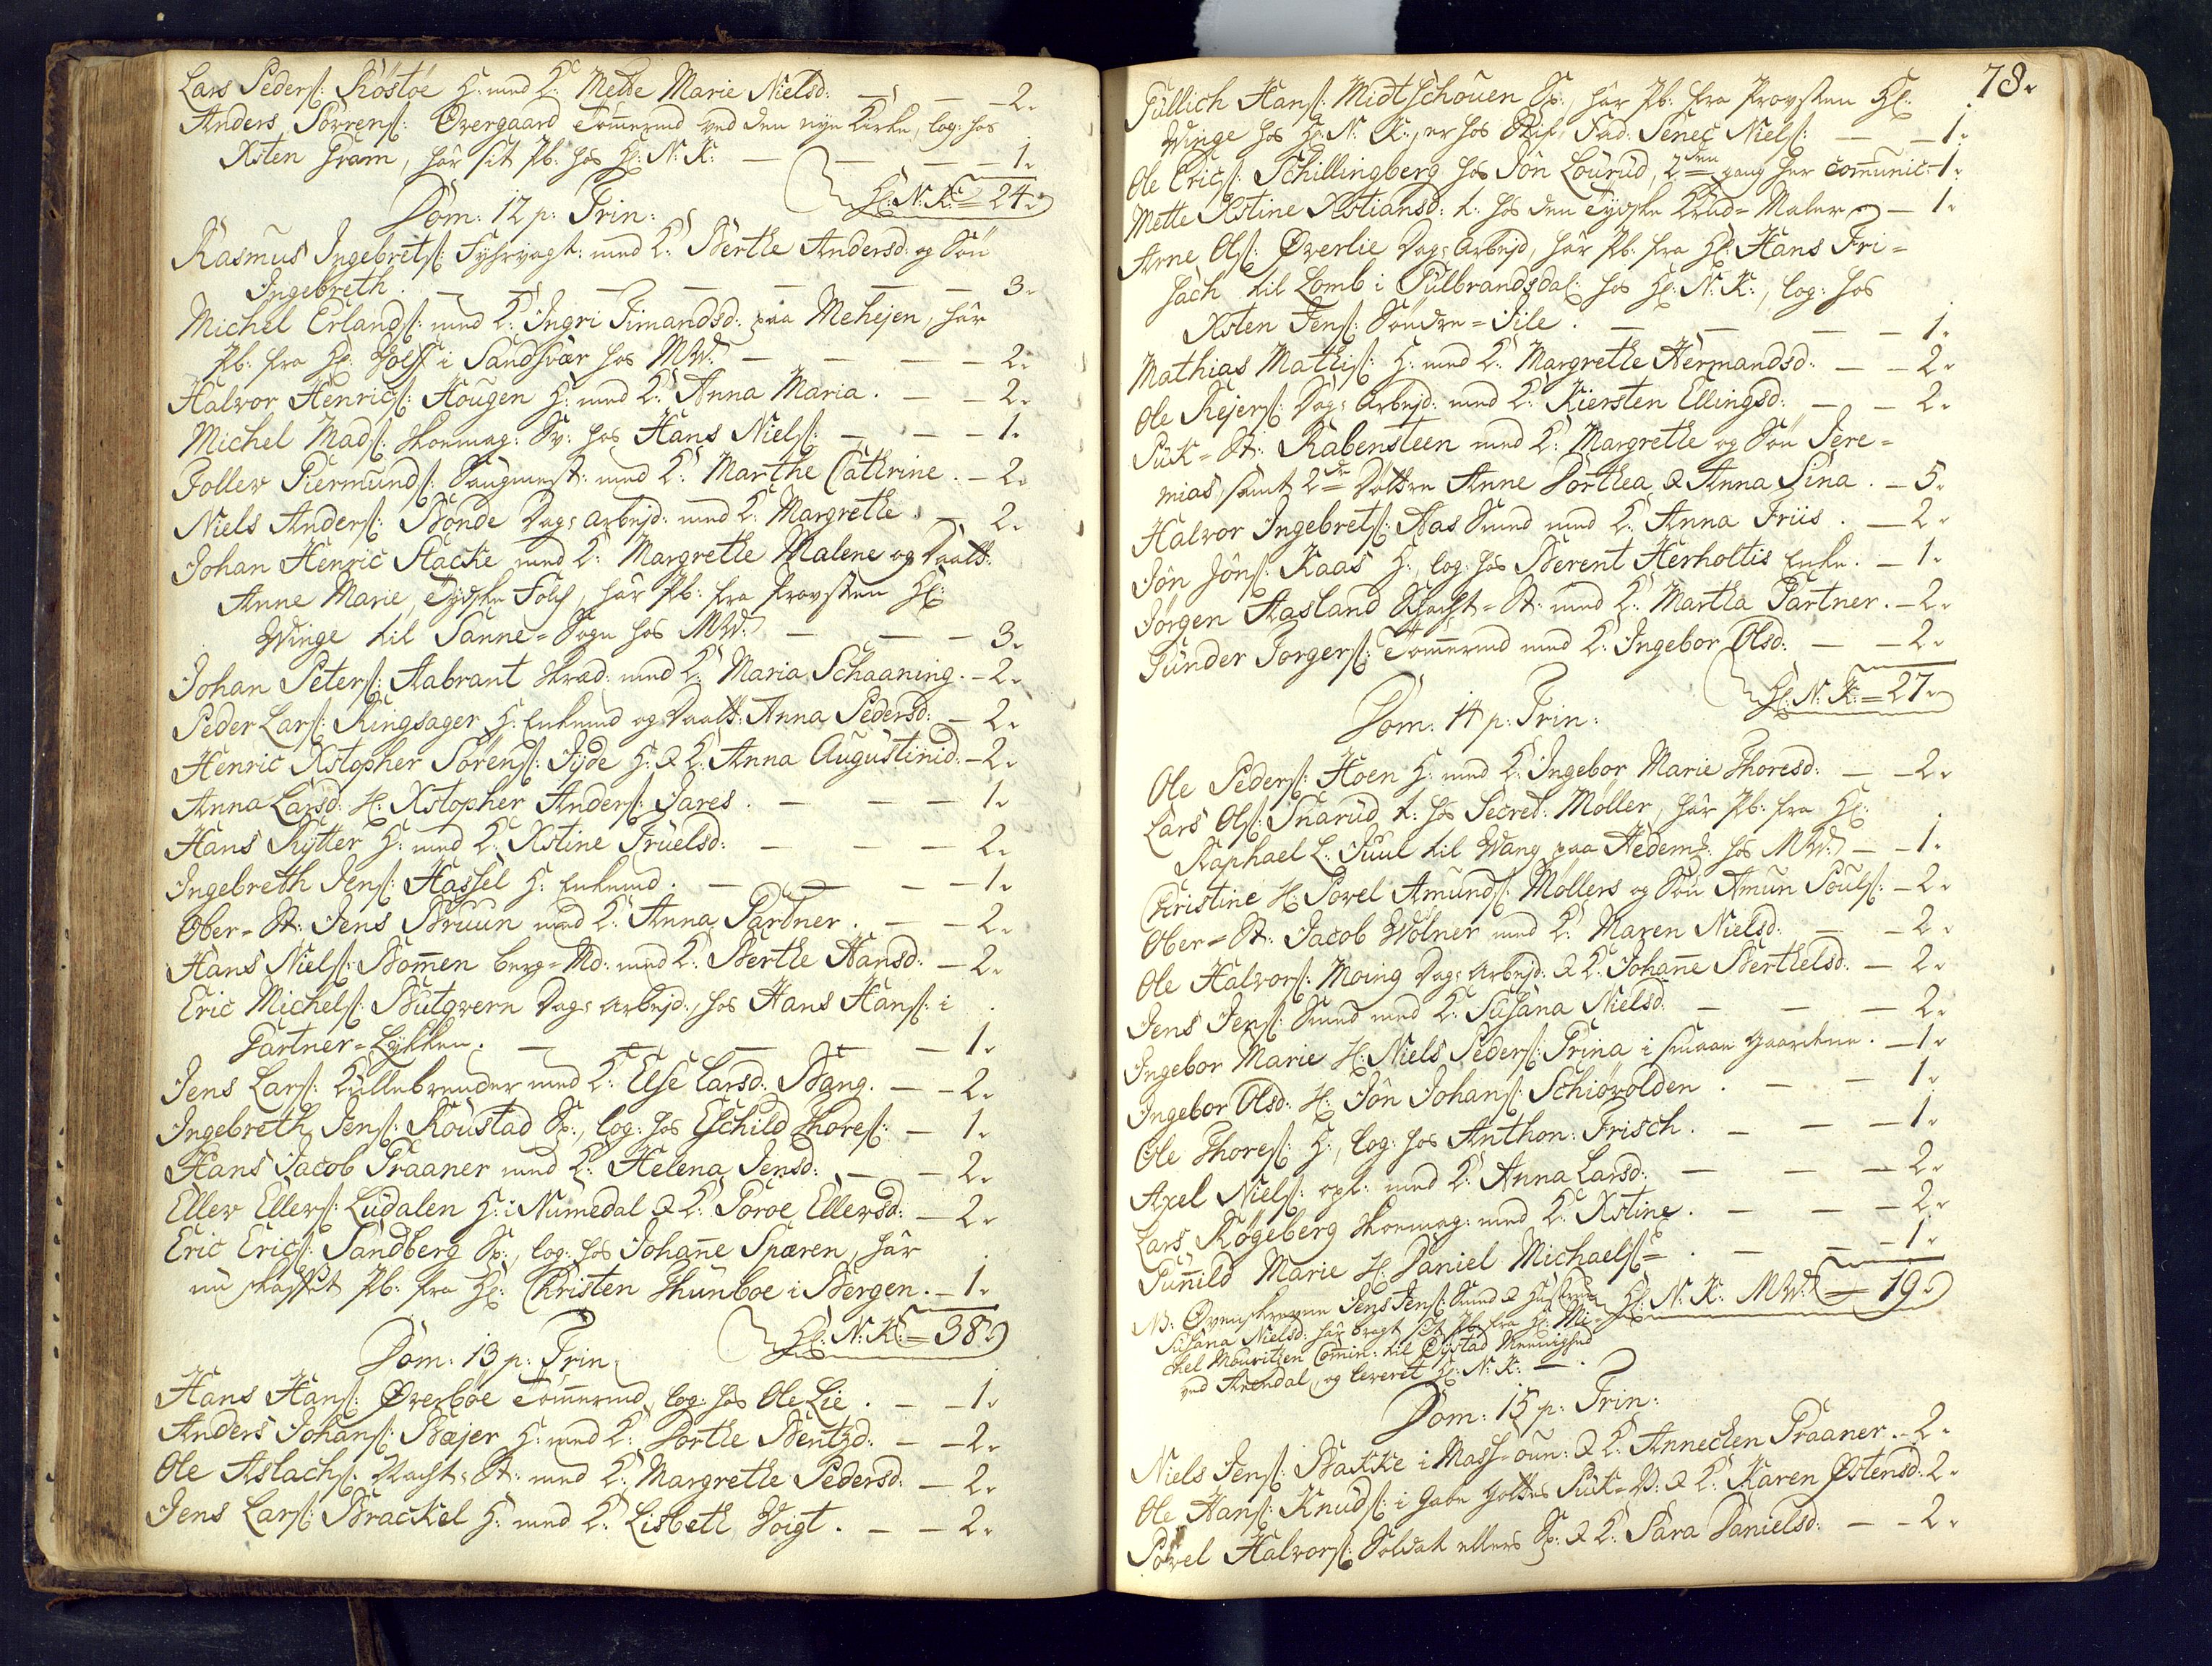 Lars Peders: Röstöe H: med K: Mette Marie Nielsd: — — 2.
Anders Sörrens: Øvergaard Tömermd ved den nye Kirke, log: hos
Xsten Gram, har sit Pb: hos Hr: N: K: — — — 1.
Hr: N: K: = 24.
Dom: 12 p: Trin:
Rasmus Ingebrets: Fyhrvagt: med K: Berthe Andersd: og Sön
Ingebreth. — — — — — — 3.
Michel Erlands: med K: Ingri Simandsd: paa Mehejen, har
Pb: fra Hr: Wolff i Sandsvær hos MW. — — — 2.
Halvor Henrics: Hougen H: med K: Anna Maria. — — 2.
Michel Mads: Skoemag: Sv: hos Hans Niels: — — — 1.
Tollev Germunds: Saugmest: med K: Marthe Cathrine. — 2.
Niels Anders: Bonde Dags arbejd: med K: Margrethe. — 2.
Johan Henric Hacke med K: Margrethe Malene og Daatt:
Anne Marie, Tydske Folk, har Pb: fra Provsten Hr:
Winge til Sanne-Sogn hos MW. — — — 3.
Johan Peters: Aabrant Skræd: med K: Maria Schaaning. — 2.
Peder Lars: Ringsager H: Enkemd og Daatt: Anna Pedersd: — 2.
Henric Xstopher Sörens: Jyde H: & K: Anna Augustinid: — 2.
Anna Larsd: H: Xstopher Anders: Jares. — — — 1.
Hans Rytter H: med K: Xstine Truelsd: — — — 2.
Ingebreth Jens: Hassel H: Enkemd. — — — 1.
Ober-St: Jens Bruun med K: Anna Gartner. — — 2.
Hans Niels: Bomen berg-Md: med K: Berthe Hansd: — 2.
Eric Michels: Butgvern Dags arbejd:, hos Hans Hans: i
Gartner-Løkken. — — — — — 1.
Jens Lars: Kullebrender med K: Else Larsd: Bang. — — 2.
Ingebreth Jens: Roustad Sp:, log: hos Eschild Thores: — 1.
Hans Jacob Graaner med K: Helena Jensd: — — 2.
Ellev Ellevs: Ludalen H: i Numedal & K: Goroe Ellevsd: — 2.
Eric Erics: Sandberg Sp:, log: hos Johane Sparen, har
nu skaffet Pb: fra Hr: Christen Thunboe i Bergen. — 1.
Hr: N: K: = 38.
Dom: 13 p: Trin:
Hans Hans: Øverböe Tömermd, log: hos Ole Lie. — — 1.
Anders Johans: Bæjer H: med K: Dorthe Bentzd: — — 2.
Ole Aslachs: Nacht-St: med K: Margrethe Pedersd: — 2.
Jens Lars: Brackel H: med K: Lisbeth Voigt. — — 2.
78.
Gullich Hans: Midtschouen Sp:, har Pb: fra Provsten Hr:
Winge hos Hr: N: K:, er hos Stif-Fad: Jenec Niels: — — 1.
Ole Erics: Schillingberg hos Jön Lourud, 2den gang her comunic: — 1.
Mette Xstine Xstiansd: t: hos den Tydske Maler — — 1.
Arne Ols: Øverlie Dags Arbejd, har Pb: fra Hr: Hans Fri-
sach til Lomb i Gulbrandsdal: hos Hr: N: K:, log: hos
Xsten Jens: Søndre-Tile. — — — — 1.
Mathias Mathis: H: med K: Margrethe Hermandsd: — — 2.
Ole Rejers: Dags Arbejd: med K: Kiersten Ellingsd: — — 2.
Puk-St: Rabensteen med K: Margrethe og Sön Jere-
mias, samt 2de Døttre Anne Dorthea & Anna Sina. — 5.
Halvor Ingebrets: Aas Smed med K: Anna Friis. — 2.
Jön Jöns: Kaas H:, log: hos Berent Herholtis Enke. — 1.
Jörgen Aasland Schacht-St: med K: Martha Gartner. — 2.
Gunder Torgers: Tömermd med K: Ingebor Olsd: — — 2.
Hr: N: K: = 27.
Dom: 14 p: Trin:
Ole Peders: Hoen H: med K: Ingebor Marie Thoresd: — — 2.
Lars Ols: Snarud t: hos Secret: Møller, har Pb: fra Hr:
Raphael L: Juul til Wang paa Hedem: hos MW. — — 1.
Christine H: Povel Amunds: Mollers og Sön Amun Pouls: — 2.
Ober-St: Jacob Wølner med K: Maren Nielsd: — — 2.
Ole Halvors: Moing Dags Arbejd: & K: Johane Berthelsd: — 2.
Jens Jens: Smed med K: Susana Nielsd: — — — 2.
Ingebor Marie H: Niels Peders: Prina i smaae Gaardene. — 1.
Ingebor Olsd: H: Jön Johans: Schiövolden. — — 1.
Ole Thores: H:, log: hos Anthon: Frisch. — — — 1.
Axel Niels: opl: med K: Anna Larsd: — — — 2.
Lars Røgeberg Skoemag: med K: Xstine. — — — 2.
Gunild Marie H: Daniel Michaels: — — — 1.
Hr: N: K: MW. = 19.
NB: Ovenskrevne Jens Jens: Smed & Hustrue
Susana Nielsd: har bragt sit Pb: fra Hr: Mi-
chel Mouritzen Comin: til Øystad Menighed
ved Arendal, og leveret Hr: N: K: —
Dom: 15 p: Trin:
Niels Jens: Bakke i Mass-oun: & K: Annecken Graaner. — 2.
Ole Hans: Knuds: i Gabe Gottes Puk-V: & K: Karen Østensd: 2.
Povel Halvors: Soldat ellers Sp: & K: Sara Danielsd: — — 2.